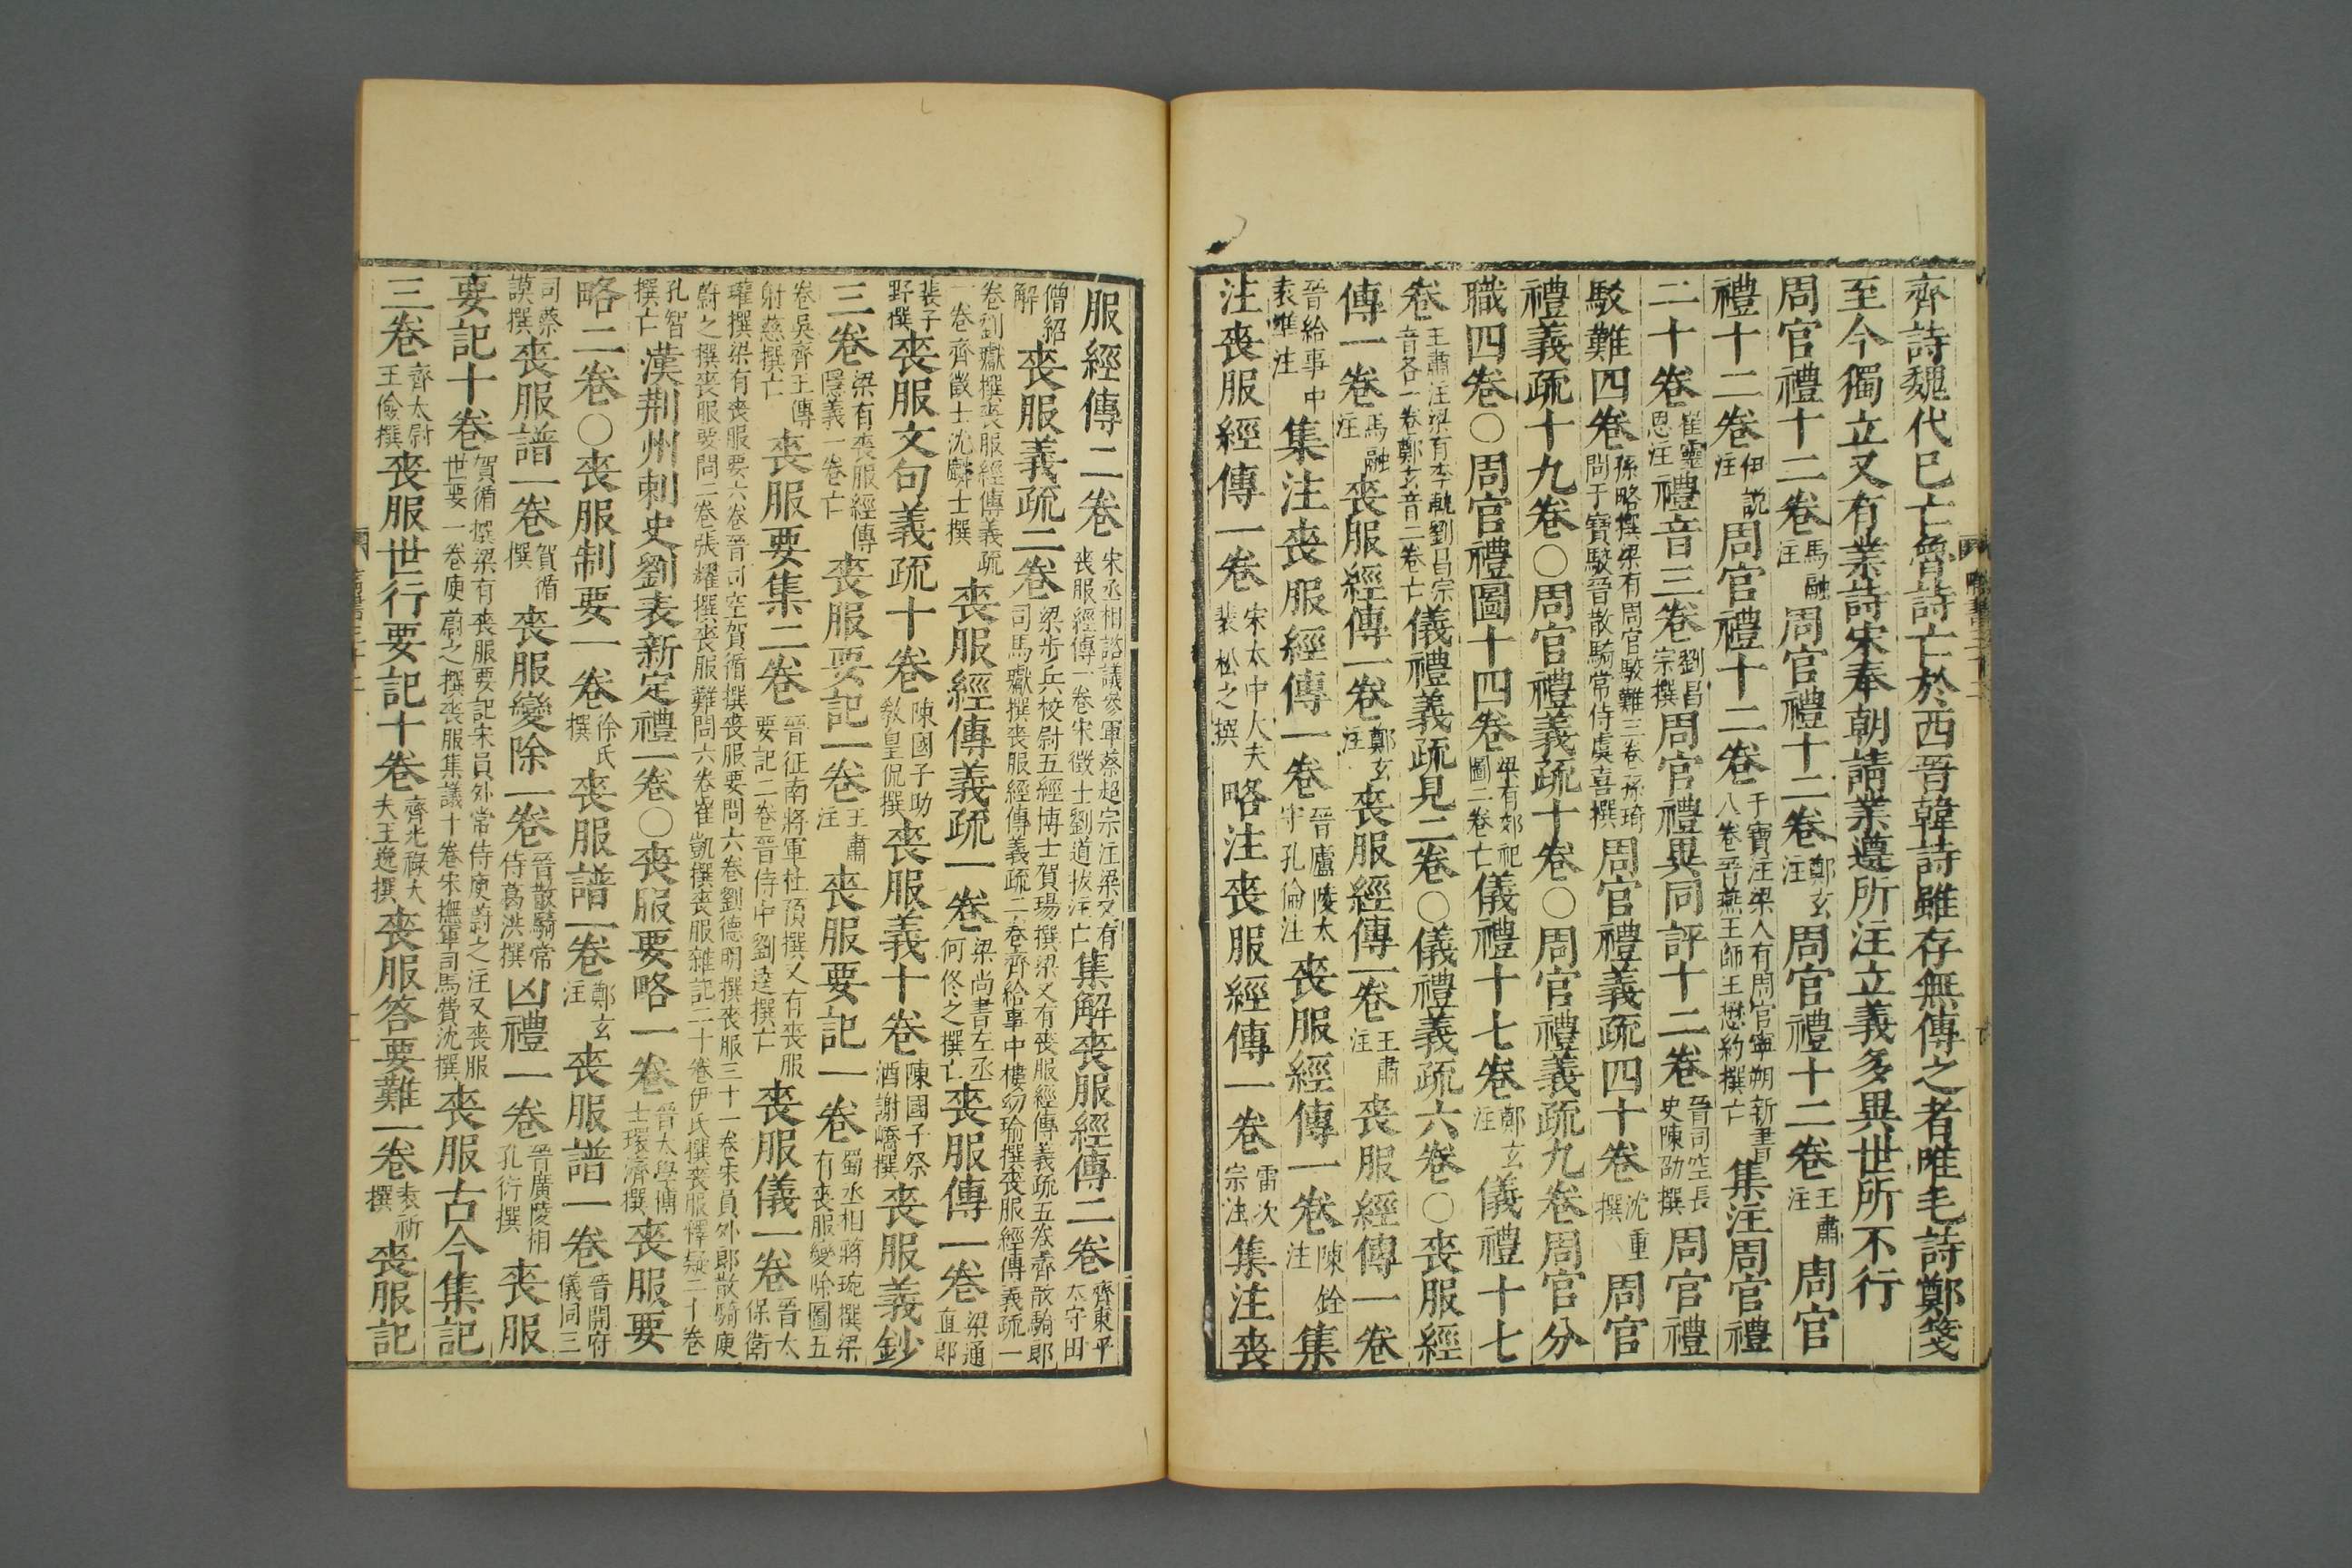 齊詩魏代已亡魯詩亡於西晉韓詩雖存無傳之者唯毛詩鄭箋
至今獨立又有業詩宋奉朝請業遵所注立義多異世所不行
周官禮十二卷馬融注周官禮十二卷鄭玄注周官禮十二卷王肅注周官
禮十二卷伊說注周官禮十二卷干寶注梁又有周官寧朔新書八卷晉燕王師王懋約撰亡集注周官禮
二十卷崔靈恩注禮音三卷劉昌宗撰周官禮異同評十二卷晉司空長史陳劭撰周官禮
駁難四卷孫略撰梁有周官駁難三卷孫琦問干寶駁晉散騎常侍虞喜撰周官禮義疏四十卷沈重撰周官
禮義疏十九卷○周官禮義疏十卷○周官禮義疏九卷周官分
職四卷○周官禮圖十四卷梁有郊祀圖二卷亡儀禮十七卷鄭玄注儀禮十七
卷王肅注梁有李軌劉昌宗音各一卷鄭玄音二卷亡儀禮義疏見二卷○儀禮義疏六卷○喪服經
傳一卷馬融注喪服經傳一卷鄭玄注喪服經傳一卷王肅注喪服經傳一卷
晉給事中袁準注集注喪服經傳一卷晉廬陵太守孔倫注喪服經傳一卷陳銓注集
注喪服經傳一卷宋太中大夫裴松之撰略注喪服經傳一卷雷次宗注集注喪
服經傳二卷宋丞相諮議參軍蔡超宗注梁又有喪服經傳一卷宋徵士劉道拔注亡集解喪服經傳二卷齊東平太守田
僧紹解喪服義疏二卷梁步兵校尉五經博士賀瑒撰梁又有喪服經傳義疏五卷齊散騎郎司馬瓛撰喪服經傳義疏二卷齊給事中樓幼瑜撰喪服經傳義疏一
卷劉瓛撰喪服經傳義疏一卷齊徵士沈麟士撰喪服經傳義疏一卷梁尚書左丞何佟之撰亡喪服傳一卷梁通直郎
裴子野撰喪服文句義疏十卷陳國子助教皇侃撰喪服義十卷陳國子祭酒謝嶠撰喪服義鈔
三卷梁有喪服經傳隱義一卷亡喪服要記一卷王肅注喪服要記一卷蜀丞相蔣琬撰梁有喪服變除圖五
卷吳齊王傅射慈撰亡喪服要集二卷晉征南將軍杜預撰又有喪服要記二卷晉侍中劉逵撰亡喪服儀一卷晉太保衛
瓘撰梁有喪服要六卷晉司空賀循撰喪服要問六卷劉德明撰喪服三十一卷宋員外郎散騎庾蔚之撰喪服要問二卷張耀撰喪服難問六卷崔凱撰喪服雜記二十卷伊氏撰喪服釋疑二十卷
孔智撰亡漢荆州刺史劉表新定禮一卷○喪服要略一卷晉太學博士環濟撰喪服要
略二卷○喪服制要一卷徐氏撰喪服譜一卷鄭玄注喪服譜一卷晉開府儀同三
司蔡謨撰喪服譜一卷賀循撰喪服變除一卷晉散騎常侍葛洪撰凶禮一卷晉廣陵相孔衍撰喪服
要記十卷賀循撰梁有喪服要記宋員外常侍庾蔚之注又喪服世要一卷庾蔚之撰喪服集議十卷宋撫軍司馬費沈撰喪服古今集記
三卷齊太尉王儉撰喪服世行要記十卷齊光祿大夫王逸撰喪服答要難一卷袁祈撰喪服記